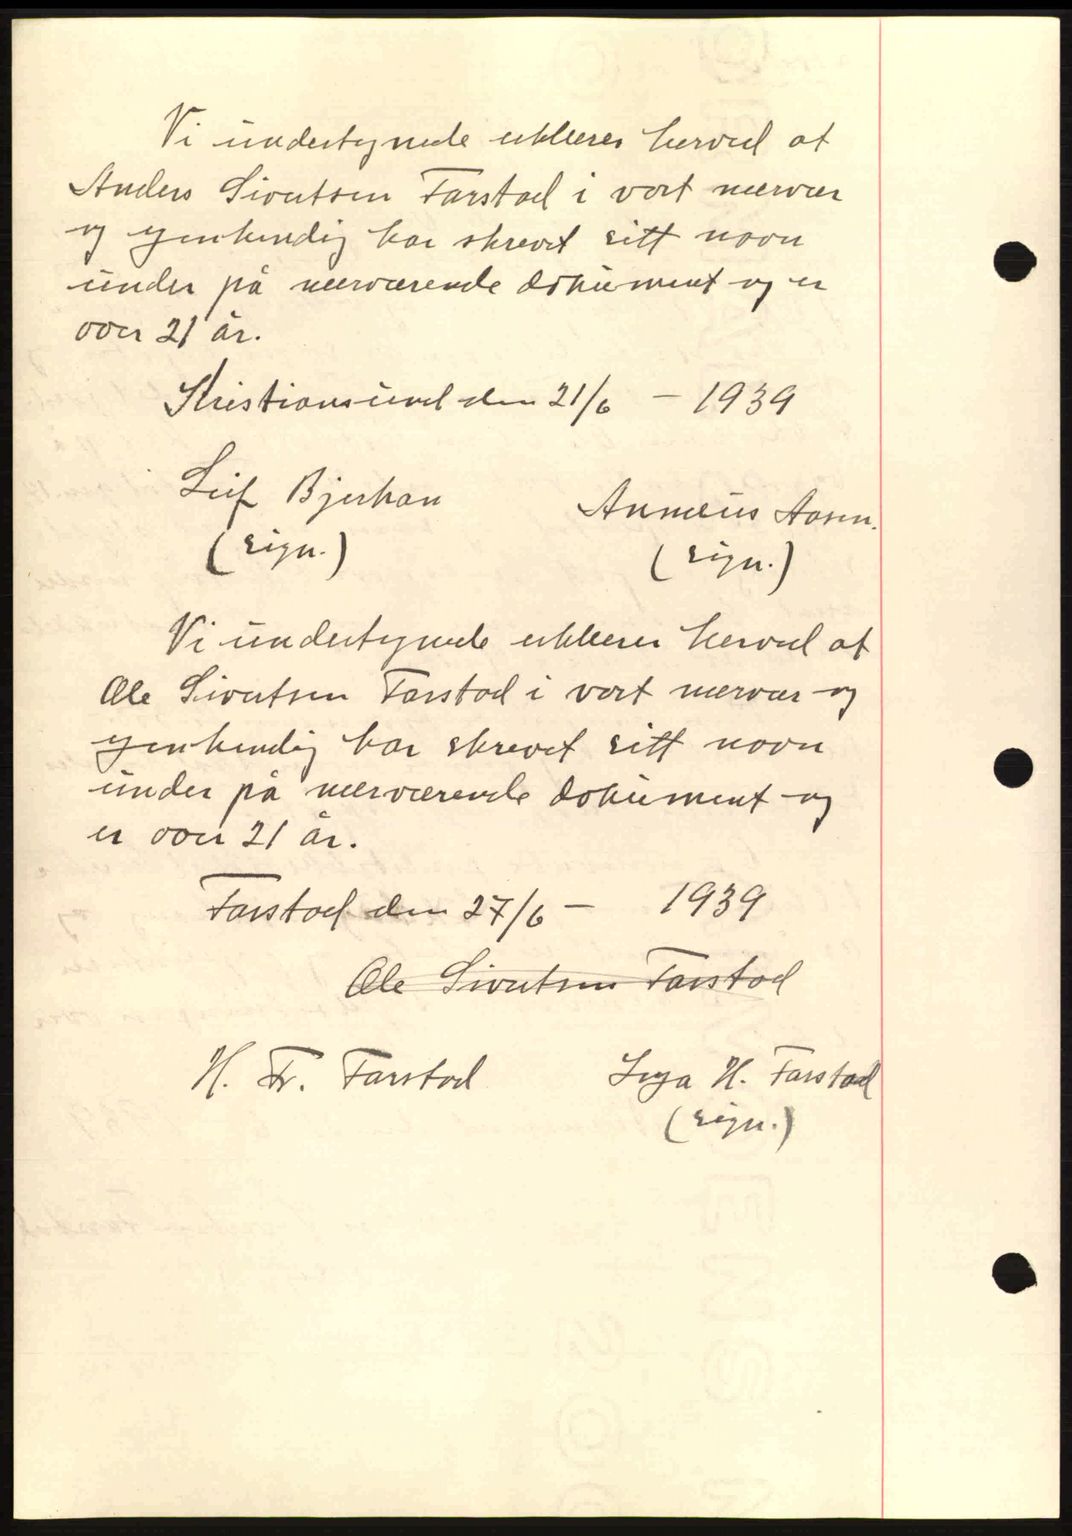 Vi undertegnede erklærer herved at
Anders Sivertsen Farstad i vort nærvær
og egenhendig har skrevet sitt navn
under på nærværende dokument og er
over 21 år.
Kristiansund den 21/6 - 1939
Leif Bjerkan
(sign.)
Aasen.
(sign.)
Vi undertegnede erklærer herved at
Ole Sivertsen Farstad i vort nærvær og
egenhendig har skrevet sitt navn
under på nærværende dokument og
er over 21 år.
Farstad den 27/6 - 1939
Ole Sivertsen Farstad
H. Fr. Farstad
Inga H. Farstad
(sign.)